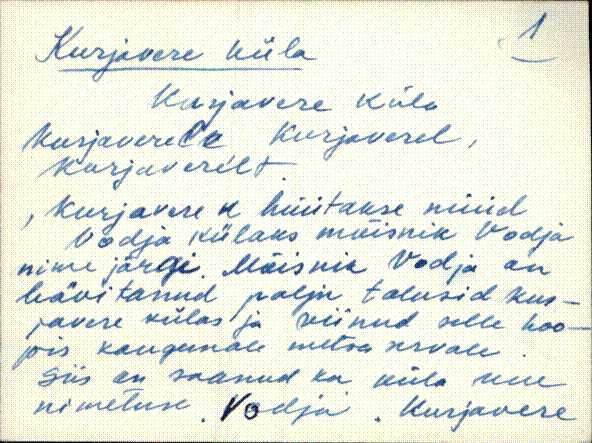 1
Kurjavere küla
Kurjavere küla
Kurjaverele Kurjaverel,
Kurjaverelt.
, Kurjavere k hüütakse nüüd
Vodja külaks mõisnik Vodja
nime järgi. Mõisnik Vodja on
hävitanud palju talusid Kur-
javere külas ja viinud selle hoo-
pis kaugemale metsa servale.
Siis on saanud ka küla uue
nimetuse. Vodja. Kurjavere